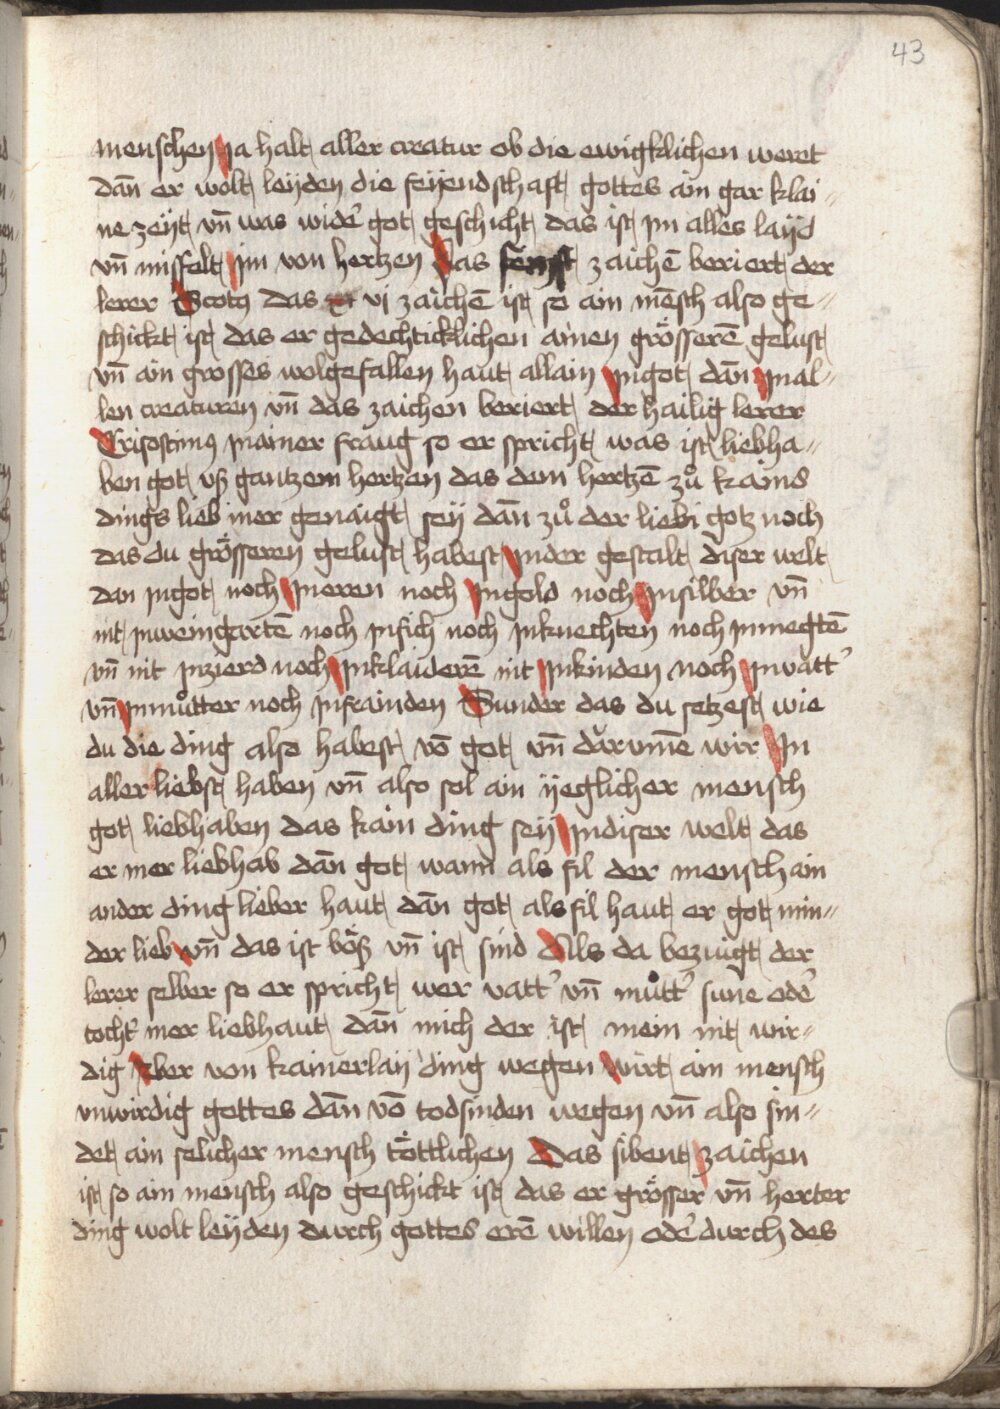 43
menschen Ja halt aller creatur ob die ewigklichen weret
dan̄ er wolt leÿden die feÿendschaft gottes ain gar klai⸗
ne zeÿt vn̄ was wider got geschicht das ist im alles laÿd
vn̄ missfelt im von hertzen Das zaichē beriert der
lerer Scotꝰ das vi zaichē ist so ain mēsch also ge⸗
schickt ist das er gedechticklichen ainen grösserē gelust
vn̄ ain grosses wolgefallen haut allain Jngot dan̄ Jnal⸗
len creaturen vn̄ das zaichen beriert der hailig lerer
Crisostimꝰ Jnainer fraug so er spricht was ist liebha⸗
ben got vß gantzem hertzen das dem hertzē zů kains
dings lieb mer genaigt seÿ dan̄ zů der liebi gotz noch
das du grösseren gelust habest Jnder gestalt diser welt
dan Jngot noch Jneren noch Jngold noch Jnsilber vn̄
nit Jnweingartē noch Jnfich noch Jnknechten noch Jnmegtē
vn̄ nit Jnzierd noch Jnklaiderē nit Jnkinden noch Jnvatt̛
vn̄ Jnmůtter noch Jnfrainden Sunder das du setzest wie
du die ding also habest vō got vn̄ darumē wir Jn
aller liebst haben vn̄ also sol ain ÿeglicher mensch
got liebhaben das kain ding seÿ Jndiser welt das
er mer liebhab dan̄ got wann als fil der mensch ain
ander ding lieber haut dan̄ got als fil haut er got min⸗
der lieb vn̄ das ist böß vn̄ ist sind Als da bezuigt der
lerer selber so er spricht wer vatt̛ vn̄ můtt̛ sune od̛e
tocht̛ mer liebhaut dan̄ mich der ist mein nit wir⸗
dig Aber von kainerlaÿ ding wegen wirt ain mensch
vnwirdig gottes dan̄ vō todsinden wegen vn̄ also sin⸗
det ain selicher mensch töttlichen Das sibent zaichen
ist so ain mensch also geschickt ist das er grösser vn̄ herter
ding wolt leÿden durch gottes erē willen od̛e durch des